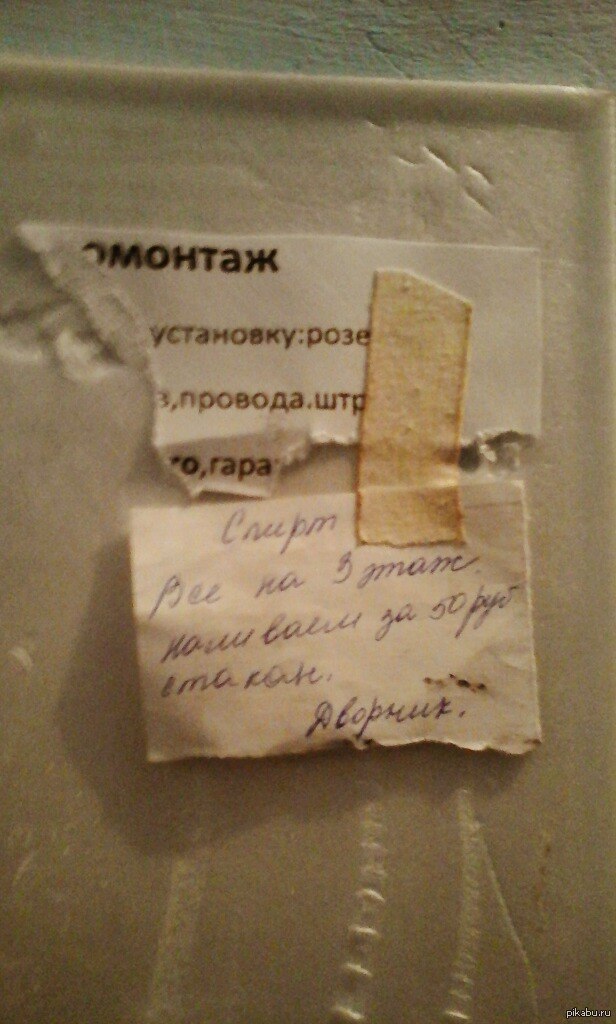 омонтаж
установку:розе
з,провода.штр
го,гара
Спирт
Все на 3 этаж.
наливаем за 50 руб
стакан.
Дворник.
pikabu.ru